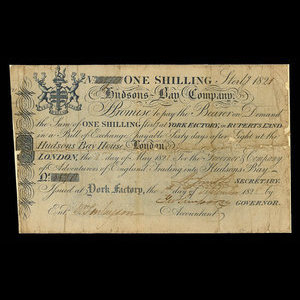 N ONE SHILLING Sterlg 1821
Hudsons Bay Company.
Promise to pay the Bearer on Demand
the Sum of ONE SHILLING Sterl at YORK FACTORY, in RUPERTS LAND
in a Bill of Exchange payable Sixty days after Sight at the
Hudsons Bay House London.
LONDON, the day of May 182 For the Governor & Company
of Adventurers of England Trading into Hudsons Bay
No. SECRETARY.
Issued at York Factory, the day of 182 by
GOVERNOR.
Ent. Accountant